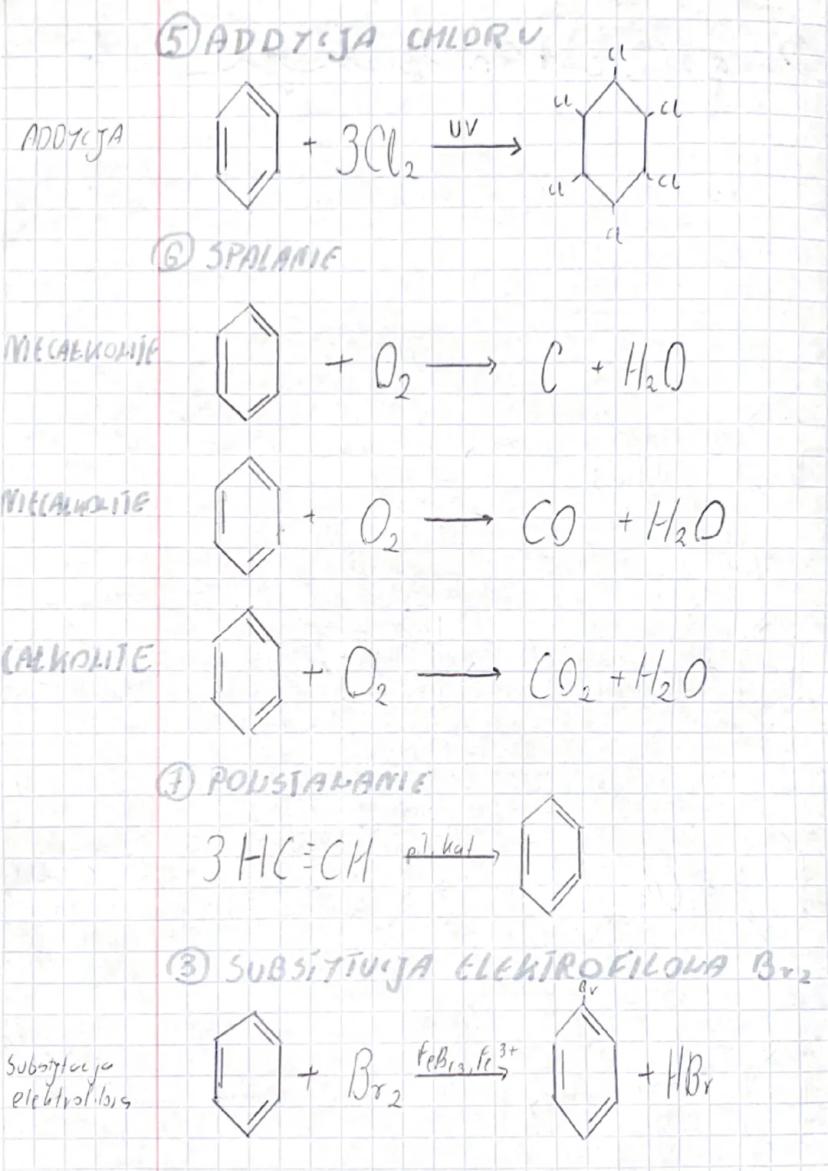 ⑤ ADDYCJA CHLORU
Cl
Cl Cl
ADDYCJA + 3Cl₂ UV →
Cl Cl
Cl
⑥ SPALANIE
NIECAŁKOWITE + O₂ → C + H₂O
NIECAŁKOWITE + O₂ → CO + H₂O
CAŁKOWITE + O₂ → CO₂ + H₂O
⑦ POWSTAWANIE
3HC≡CH p,T, kat →
③ SUBSTYTUCJA ELEKTROFILOWA Br₂
Br
Substytucja + Br₂ FeBr₃, Fe³⁺ → + HBr
elektrofilowa